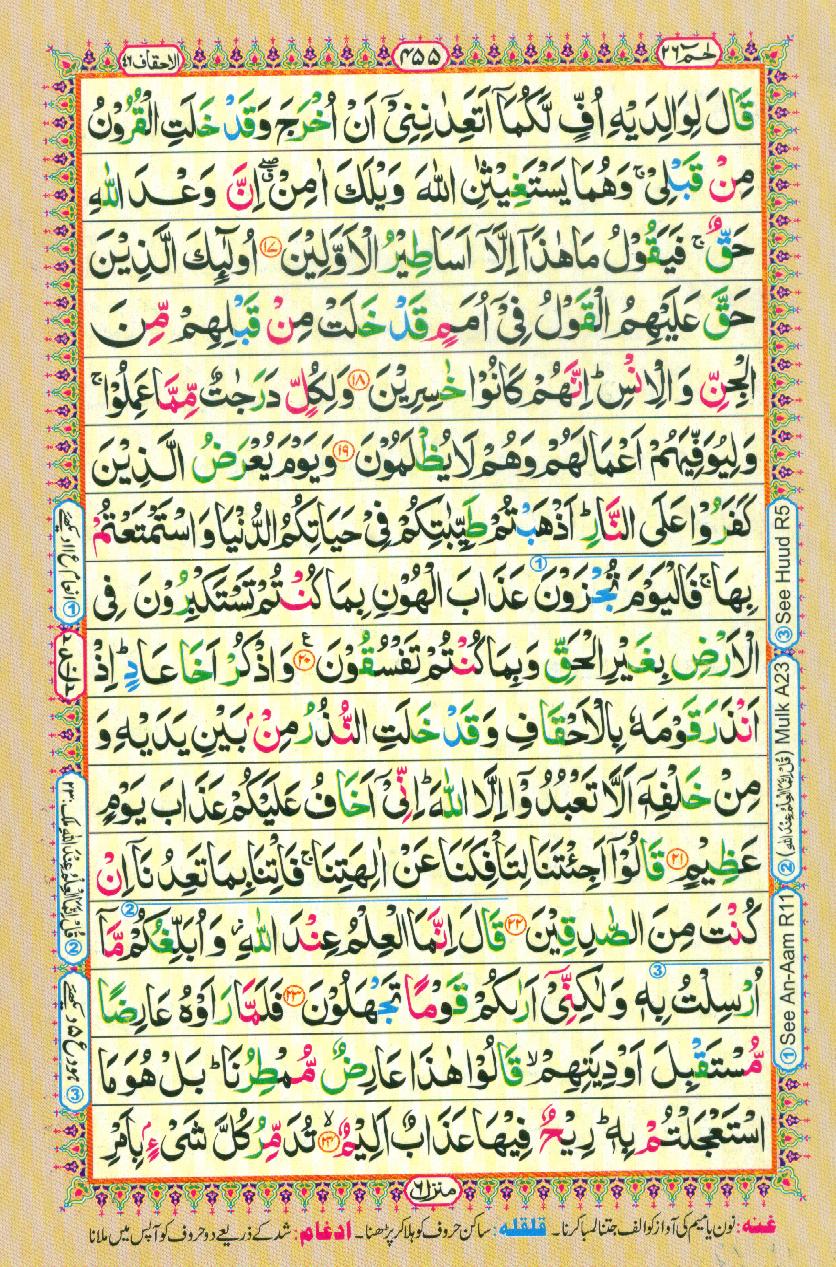 حٰمٓ ٢٦
٤٥٥
الاحقاف ٤٦
قَالَ لِوَالِدَيْهِ اُفٍّ لَّكُمَاۤ اَتَعِدٰنِنِىْۤ اَنْ اُخْرَجَ وَقَدْ خَلَتِ الْقُرُوْنُ
مِنْ قَبْلِىْ ۚ وَهُمَا يَسْتَغِيْثٰنِ اللّٰهَ وَيْلَكَ اٰمِنْ ۖ اِنَّ وَعْدَ اللّٰهِ
حَقٌّ ۚ فَيَقُوْلُ مَا هٰذَاۤ اِلَّاۤ اَسَاطِيْرُ الْاَوَّلِيْنَ ﴿۱۷﴾ اُولٰٓئِكَ الَّذِيْنَ
حَقَّ عَلَيْهِمُ الْقَوْلُ فِىْۤ اُمَمٍ قَدْ خَلَتْ مِنْ قَبْلِهِمْ مِّنَ
الْجِنِّ وَالْاِنْسِ ؕ اِنَّهُمْ كَانُوْا خٰسِرِيْنَ ﴿۱۸﴾ وَلِكُلٍّ دَرَجٰتٌ مِّمَّا عَمِلُوْا ۚ
وَلِيُوَفِّيَهُمْ اَعْمَالَهُمْ وَهُمْ لَا يُظْلَمُوْنَ ﴿۱۹﴾ وَيَوْمَ يُعْرَضُ الَّذِيْنَ
كَفَرُوْا عَلَى النَّارِ ؕ اَذْهَبْتُمْ طَيِّبٰتِكُمْ فِىْ حَيَاتِكُمُ الدُّنْيَا وَاسْتَمْتَعْتُمْ
بِهَا ۚ فَالْيَوْمَ تُجْزَوْنَ عَذَابَ الْهُوْنِ بِمَا كُنْتُمْ تَسْتَكْبِرُوْنَ فِى
الْاَرْضِ بِغَيْرِ الْحَقِّ وَبِمَا كُنْتُمْ تَفْسُقُوْنَ ﴿۲۰﴾ وَاذْكُرْ اَخَا عَادٍ ؕ اِذْ
اَنْذَرَ قَوْمَهٗ بِالْاَحْقَافِ وَقَدْ خَلَتِ النُّذُرُ مِنْۢ بَيْنِ يَدَيْهِ وَ
مِنْ خَلْفِهٖۤ اَلَّا تَعْبُدُوْۤا اِلَّا اللّٰهَ ؕ اِنِّىْۤ اَخَافُ عَلَيْكُمْ عَذَابَ يَوْمٍ
عَظِيْمٍ ﴿۲۱﴾ قَالُوْۤا اَجِئْتَنَا لِتَاْفِكَنَا عَنْ اٰلِهَتِنَا ۚ فَاْتِنَا بِمَا تَعِدُنَاۤ اِنْ
كُنْتَ مِنَ الصّٰدِقِيْنَ ﴿۲۲﴾ قَالَ اِنَّمَا الْعِلْمُ عِنْدَ اللّٰهِ ۖ وَاُبَلِّغُكُمْ مَّاۤ
اُرْسِلْتُ بِهٖ وَلٰكِنِّىْۤ اَرٰىكُمْ قَوْمًا تَجْهَلُوْنَ ﴿۲۳﴾ فَلَمَّا رَاَوْهُ عَارِضًا
مُّسْتَقْبِلَ اَوْدِيَتِهِمْ ۙ قَالُوْا هٰذَا عَارِضٌ مُّمْطِرُنَا ؕ بَلْ هُوَ مَا
اسْتَعْجَلْتُمْ بِهٖ ؕ رِيْحٌ فِيْهَا عَذَابٌ اَلِيْمٌ ﴿۲۴﴾ ۙ تُدَمِّرُ كُلَّ شَىْءٍۭ بِاَمْرِ
منزل ٦
غنہ: نون یا میم کی آواز کو الف جتنا لمبا کرنا۔ قلقلہ: ساکن حروف کو ہلا کر پڑھنا۔ ادغام: شد کے ذریعے دو حروف کو آپس میں ملانا
① See An-Aam R11
② (قُلْ اِنَّمَا الْعِلْمُ عِنْدَ اللّٰهِ) Mulk A23
③ See Huud R5
① انعام ع ۱۱ دیکھئے
② قُلْ اِنَّمَا الْعِلْمُ عِنْدَ اللّٰهِ ملک: ۲۳
③ ہود ع ۵ دیکھئے